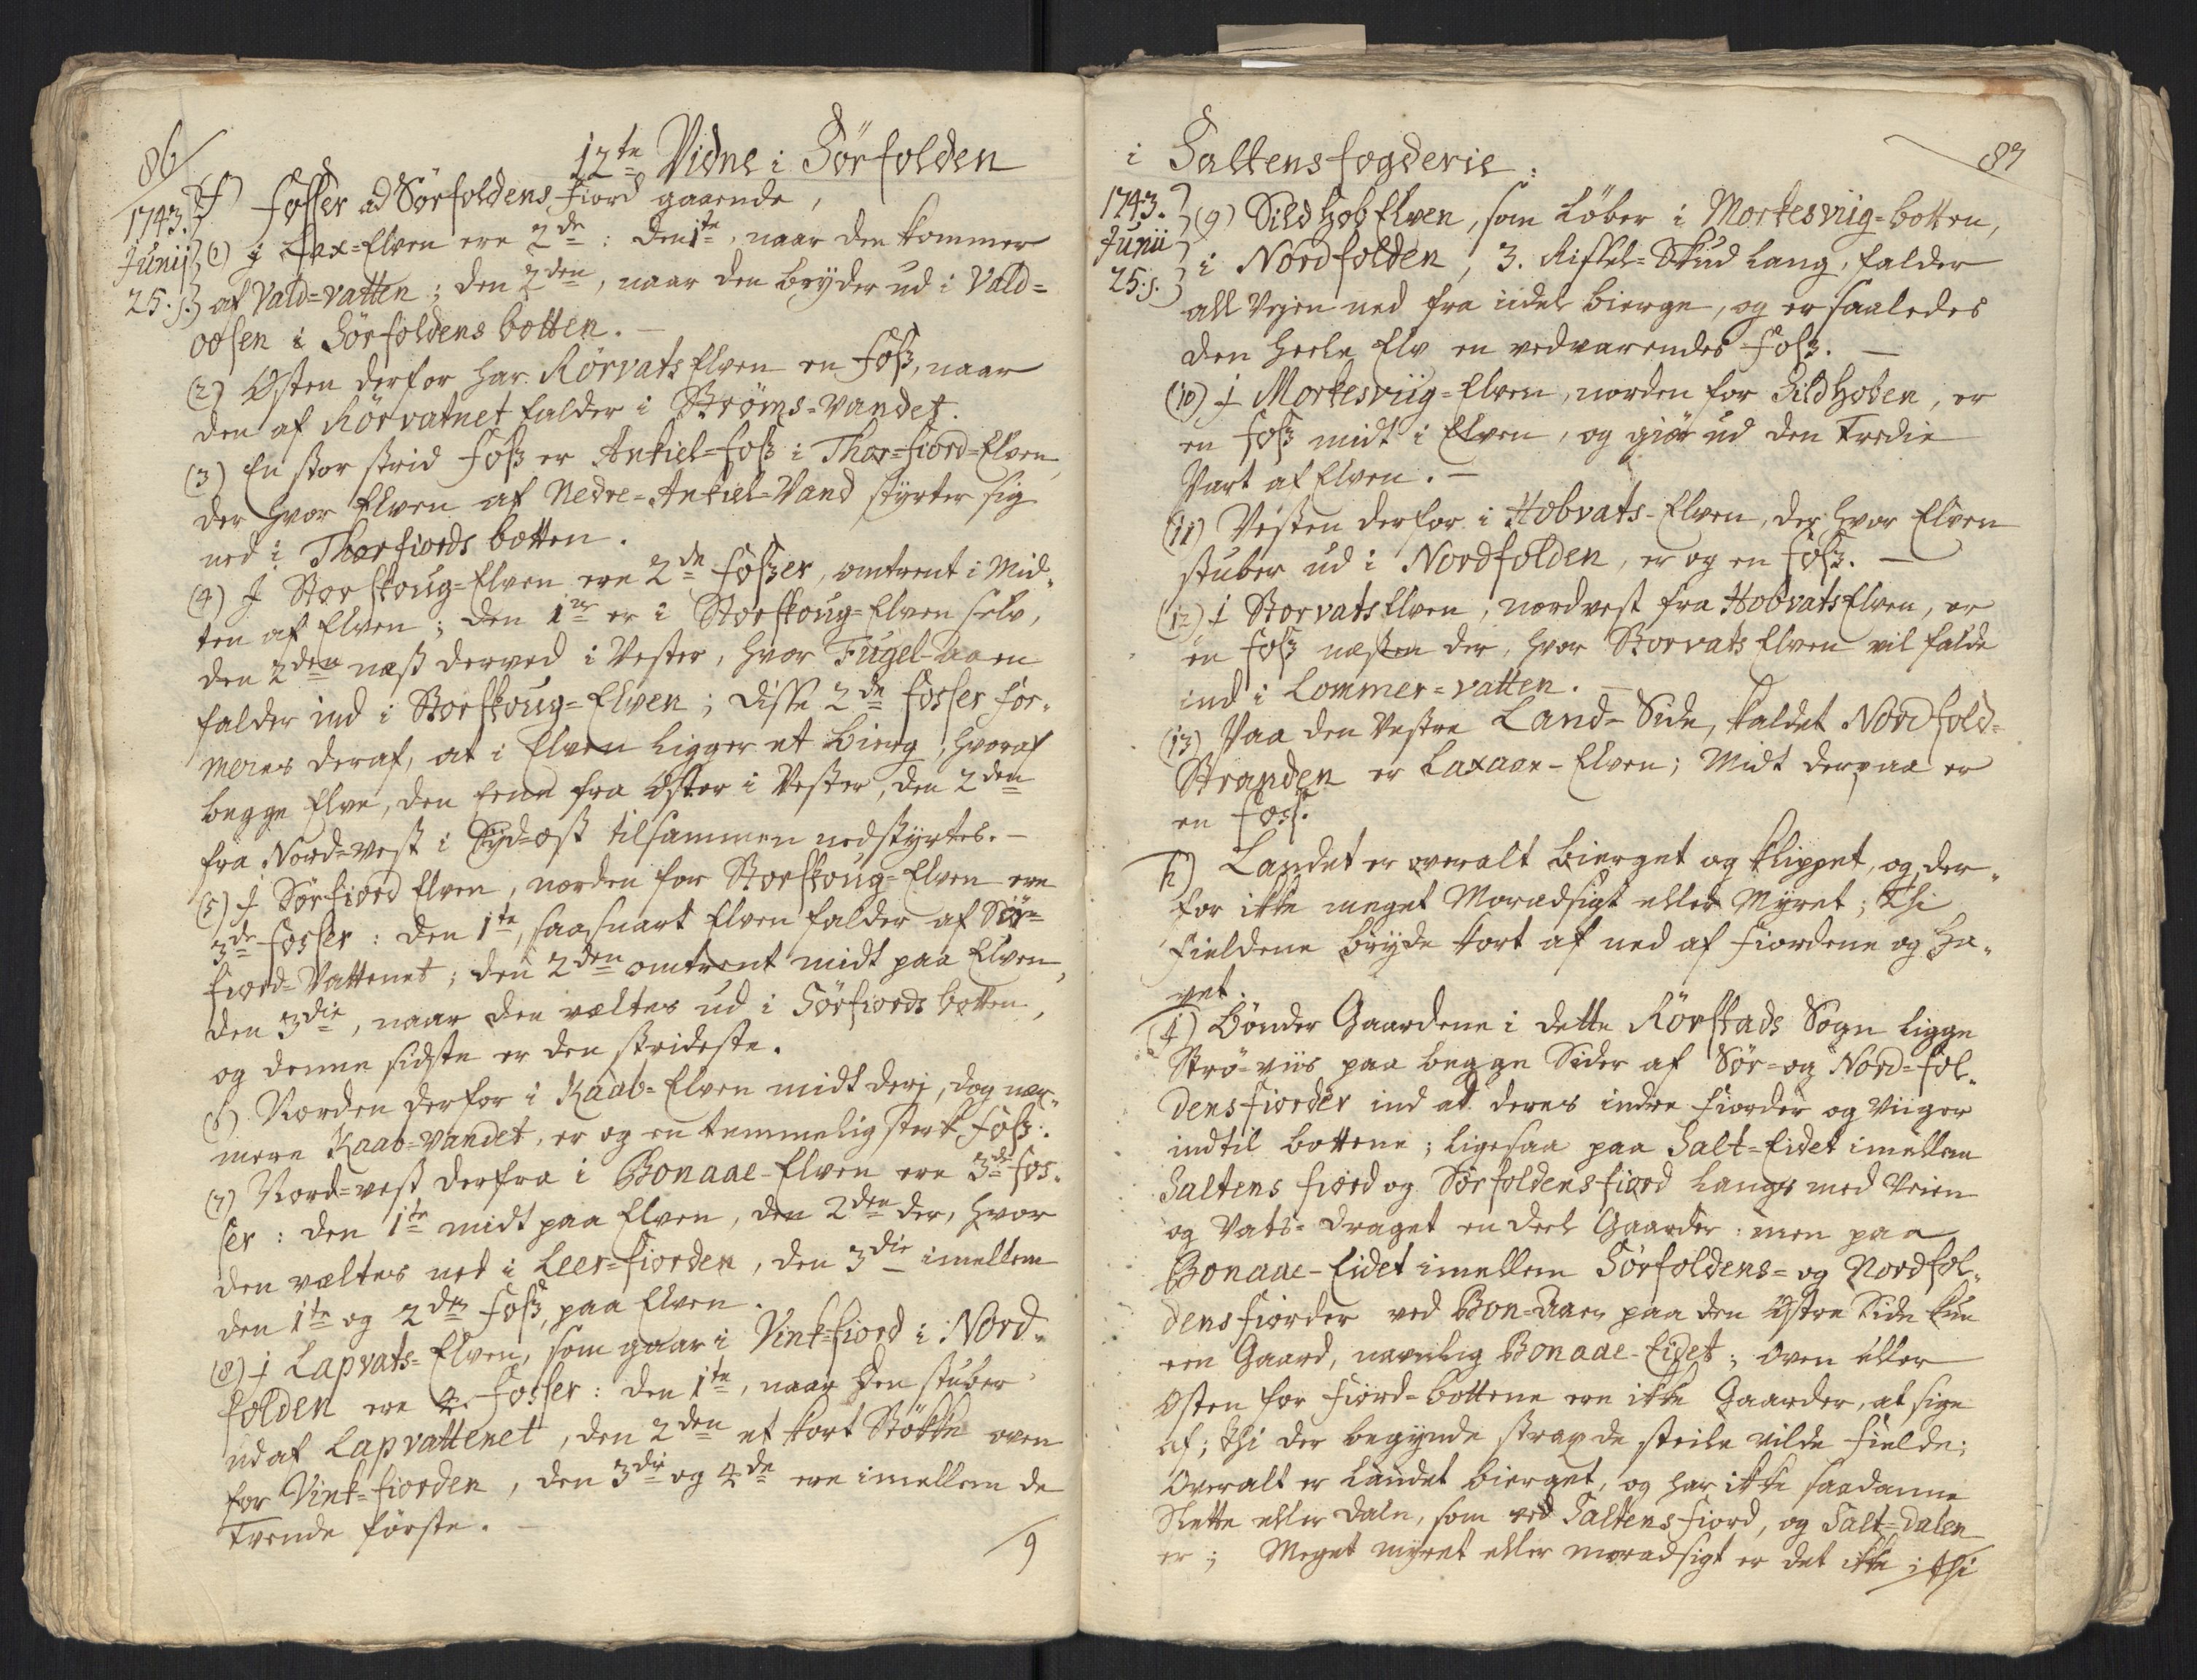 86
12te Vidne i Sörfolden
1743.
Junij
25.s.
f) Fosser ad Sörfoldens fiord gaaende,
(1) J Lax=Elven ere 2de: den 1te, naar den kommer
af Vald=vatten; den 2den, naar den bryder ud i Vald=
oosen i Sörfoldens botten. —
(2) Østen derfor har Rörvats Elven en Foss, naar
den af Rörvatnet falder i Strøms=vandet.
(3) En stor strid Foss er Ankiel=foss i Thor=fiord=Elven,
der hvor Elven af Nedre=Ankiel=Vand styrter sig
ned i Thorfiords botten.
(4) J Storskoug=Elven ere 2de Fosser, omtrent i Mid=
ten af Elven; den 1te er i Storskoug=Elven selv,
den 2den næst derved i Vester, hvor Fugel-aaen
falder ind i Storskoug=Elven; disse 2de Fosser for=
meres deraf, at i Elven ligger et bierg, hvoraf
begge Elve, den Eene fra Øster i Vester, den 2den
fra Nord=vest i Syd=ost tilsammen nedstyrtes. —
(5) J Sörfiord Elven, norden for Storskoug=Elven ere
3de Fosser: den 1te, saasnart Elven falder af Sör=
fiord=Vattenet; den 2den omtrent midt paa Elven,
den 3die, naar den væltes ud i Sörfiords botten,
og denne sidste er den strideste.
(6) Norden derfor i Kaab=Elven midt deri, dog nær=
mere Kaab=vandet, er og en temmelig sterk Foss.
(7) Nord=vest derfra i Bonaae-Elven ere 3de Fos=
ser: den 1te midt paa Elven, den 2den der, hvor
den væltes ned i Leer=fiorden, den 3die imellem
den 1te og 2den Foss, paa Elven.
(8) J Lapvats=Elven, som gaar i Vink=fiord i Nord=
folden ere 4. Fosser: den 1te, naar den stuber
ud af Lapvattenet, den 2den et kort Stökke oven
for Vink=fiorden, den 3die og 4de ere imellem de
tvende förste. —
9
i Saltens fogderie:
87
1743.
Junii
25.s.
(9) Sild Hob Elven, som löber i Morkesviig=botten,
i Nordfolden, 3. Riffel=Skud lang, falder
all Vejen ned fra idel bierge, og er saaledes
den heele Elv en vedvarendes Foss. —
(10) J Morkesviig=Elven, norden for Sild Hoben, er
en Foss midt i Elven, og giör ud den tredie
Part af Elven. —
(11) Vesten derfor i Hobvats-Elven, der hvor Elven
stuber ud i Nordfolden, er og en Foss. —
(12) J Storvats Elven, nordvest fra Hobvats Elven, er
en Foss næsten der, hvor Storvats Elven vil falde
ind i Lommer=vatten. —
(13) Paa den Vestre Land-Side, kaldet Nordfold=
Stranden er Laxaae-Elven; Midt derpaa er
en Foss.
h) Landet er overalt bierget og klippet, og der=
for ikke meget Moradsigt eller Myret; thi
Fieldene bryde kort af ned af Fiordene og Ha=
vet.
(i) Bönder Gaardene i dette Rörstads Sogn ligge
Strö-viis paa begge Sider af Sör= og Nord=fol=
dens fiorder ind ad deres indre fiorder og Viiger
indtil bottene; ligesaa paa Salt=Eidet imellem
Saltens fiord og Sörfoldens fiord langs med Veien
og Vats=draget en deel Gaarder: men paa
Bonaae-Eidet imellem Sörfoldens= og Nordfol=
dens fiorder ved Bon-Aaen paa den østre Side kun
een Gaard, navnlig Bonaae-Eidet; Oven eller
Østen for Fiord=bottene ere ikke Gaarder, at sige
af; thi der begynde strax de steile vilde Fielde;
Overalt er Landet bierget, og har ikke saadanne
Slette eller dale, som ved Saltens Fiord, og Salt=dalen
er; Meget myret eller moradsigt er det ikke; thi